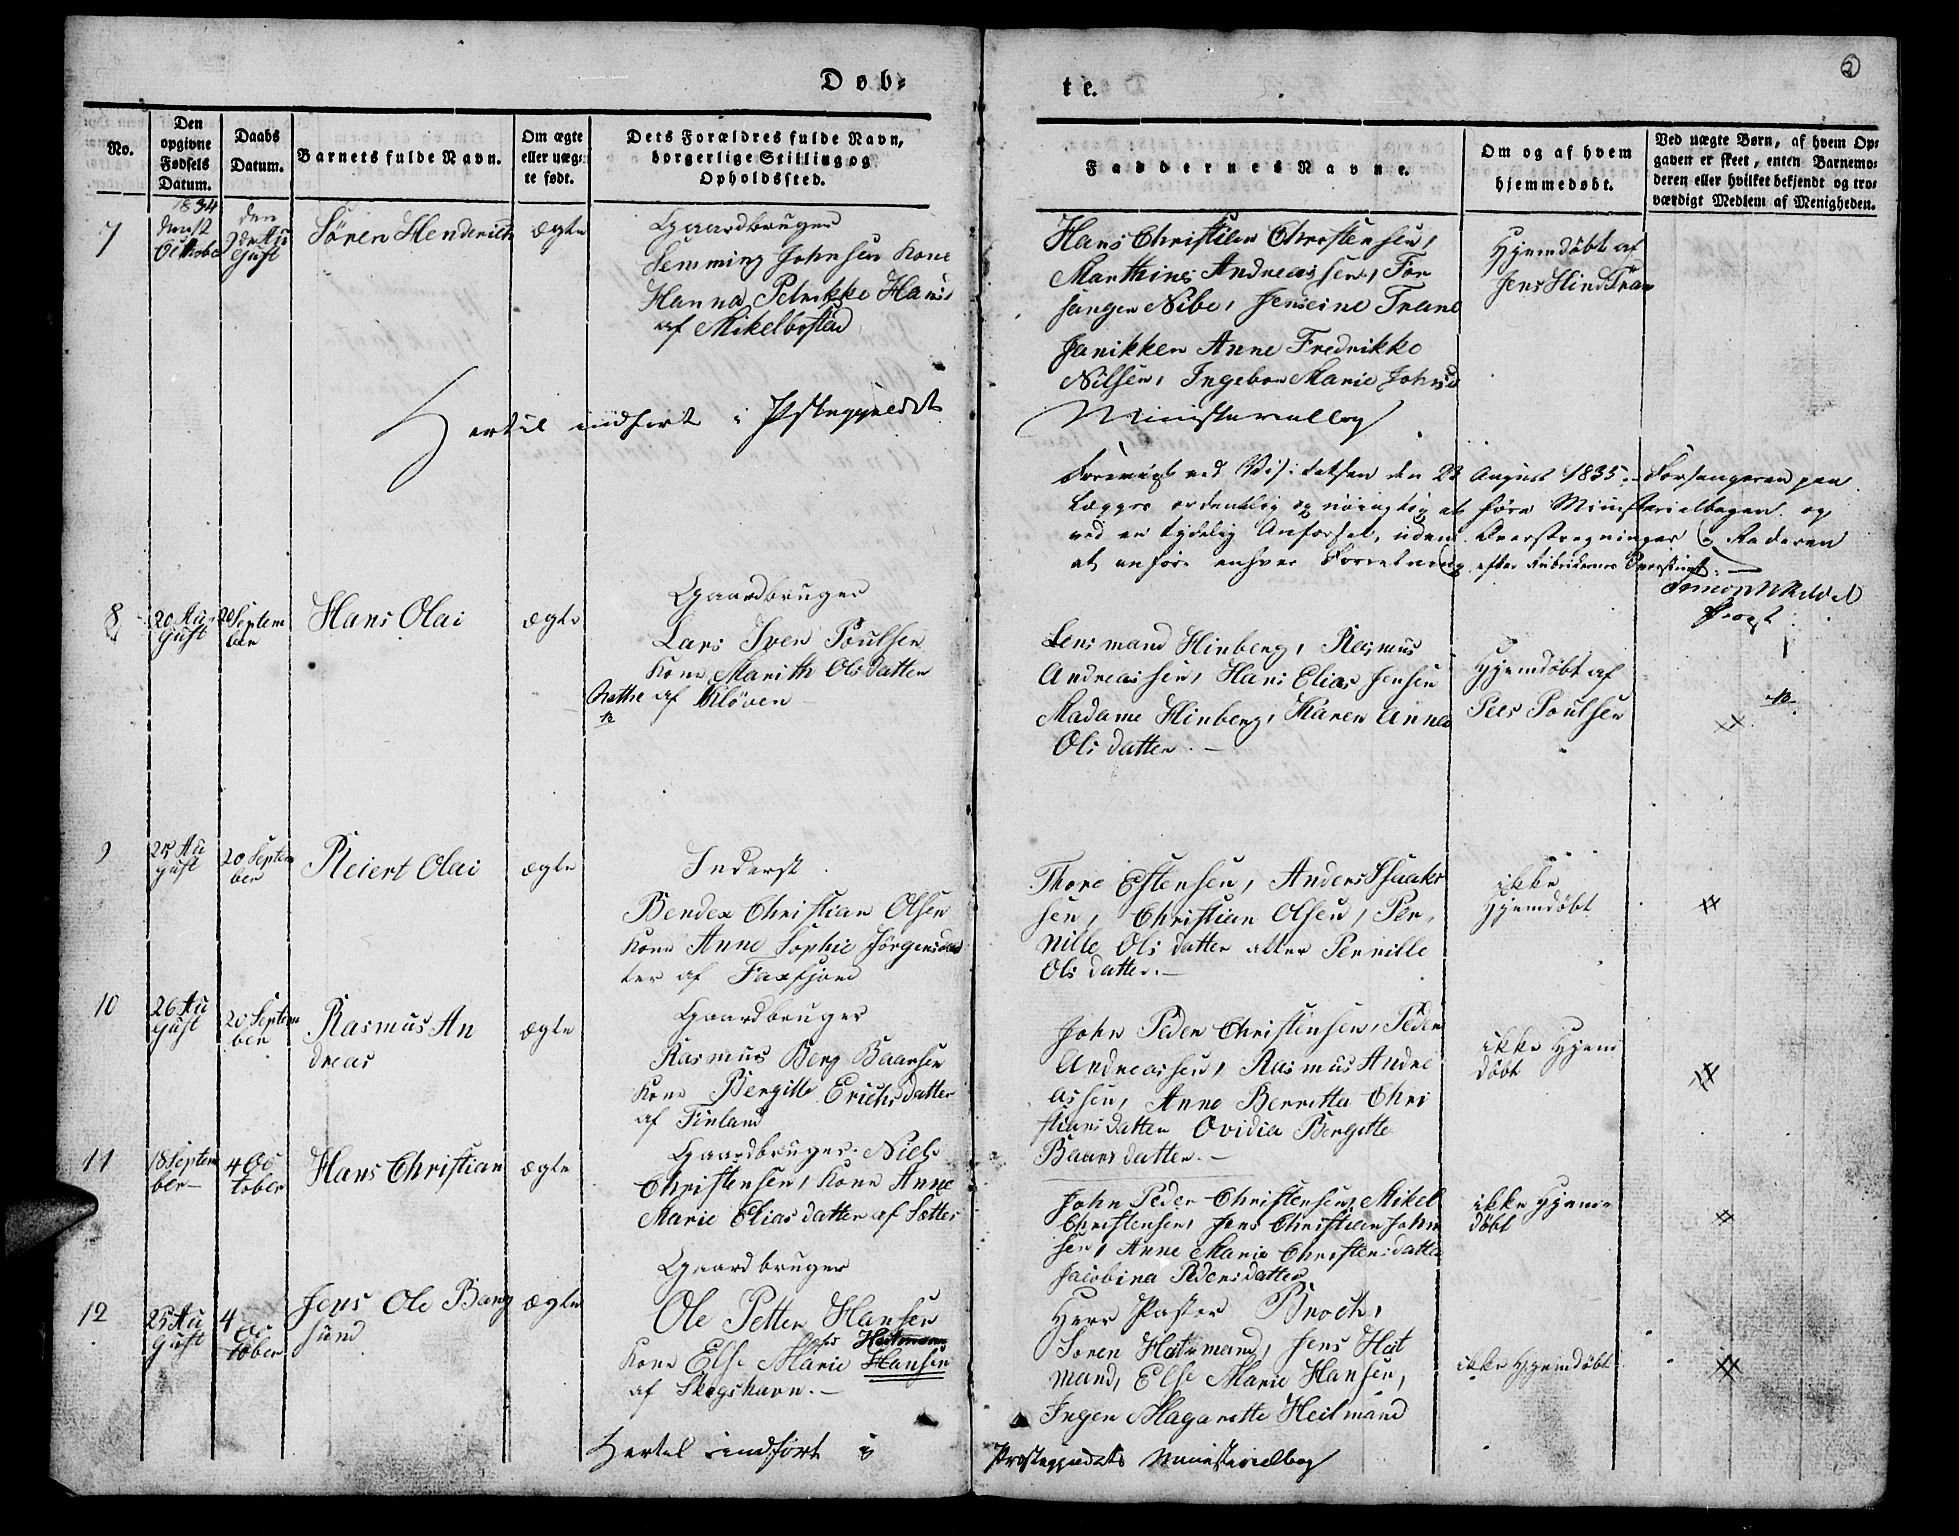 Døb-
te.
2
No.
Den
opgivne
Fødsels
Datum.
Daabs
Datum.
Barnets fulde Navn.
Om ægte
eller uæg-
te født.
Dets Forældres fulde Navn,
borgerlige Stilling og
Opholdssted.
Faddernes Navne.
Om og af hvem
hjemmedøbt.
Ved uægte Børn, af hvem Op-
gaven er skeet, enten Barnemo-
deren eller hvilket bekjendt og tro-
værdigt Medlem af Menigheden.
7
1834
den 12
October
den
9de Au
gust
Søren Henderich
ægte
Gaardbruger
Lemming Johnsen Kone
Hanna Petrikke Hans
af Mikelbostad
Hans Christian Christensen,
Marthines Andreassen, For
sanger Nibe, Jenseine Trane
Janikken Anne Fredrikke
Nilsen, Ingebor Marie Johnsd
Hjemdøbt af
Jens Hind Tran
Hertil indført i Pstegjeldets
Ministerialbog
Foreviist ved Visitatsen den 23 August 1835. Forsangeren paa
lægges ordentlig og nøiagtig at føre Ministerialbogen og
ved en tydelig Anførsel, uden Overstregninger og Raderen
at anføre enhver Forretning efter Rubrikernes Overskrift.
Provst
8
20 Au
gust
20 Septem
ber
Hans Olai
ægte
Gaardbruger
Lars Iver Poulsen
Kone Marith Olsdatter
af Kløven
Lensmand Hinberg, Rasmus
Andreassen, Hans Elias Jensen
Madame Hinberg, Karen Anna
Olsdatter. —
Hjemdøbt af
Peer Poulsen
9
25 Au
gust
20 Septem
ber
Reiert Olai
ægte
Inderst
Bendex Christian Olsen
Kone Anne Sophie Jørgensdat
ter af Faxfjord
Thore Estensen, Anders Isaak
sen, Christian Olsen, Per-
nille Olsdatter atter Pernille
Olsdatter. —
ikke
Hjemdøbt
10
26 Au
gust
20 Septem
ber
Rasmus An
dreas
ægte
Gaardbruger
Rasmus Berg Baarsen
Kone Bergitte Erichsdatter
af Finland
John Peder Christensen, Peder
Andreassen, Rasmus Andre
assen, Anne Berretta Chri
stiansdatter Ovidia Bergitte
Baarsdatter. —
ikke Hjem
døbt
11
18 Septem
ber —
4 Oc
tober
Hans Christian
ægte
Gaardbruger Niels
Christensen, Kone Anne
Marie Eliasdatter af Sætter
John Peder Christensen, Mikel
Christensen, Jens Christian John
sen, Anne Marie Christensdatter
Jacobina Pedersdatter
ikke Hjem-
døbt
12
25 Au
gust
4
Oc
tober
Jens Ole Bang
sund
ægte
Gaardbruger
Ole Petter Hansen
Heitmann
Kone Else Marie Hansen
af Skogshavn. —
Herr Pastor Broch,
Søren Hatmand, Jens Hat
mand, Else Marie Hansen,
Inger Magarette Heitmand
ikke Hjemdøbt
Hertil indført i
Præstegjeldets Ministerialbog